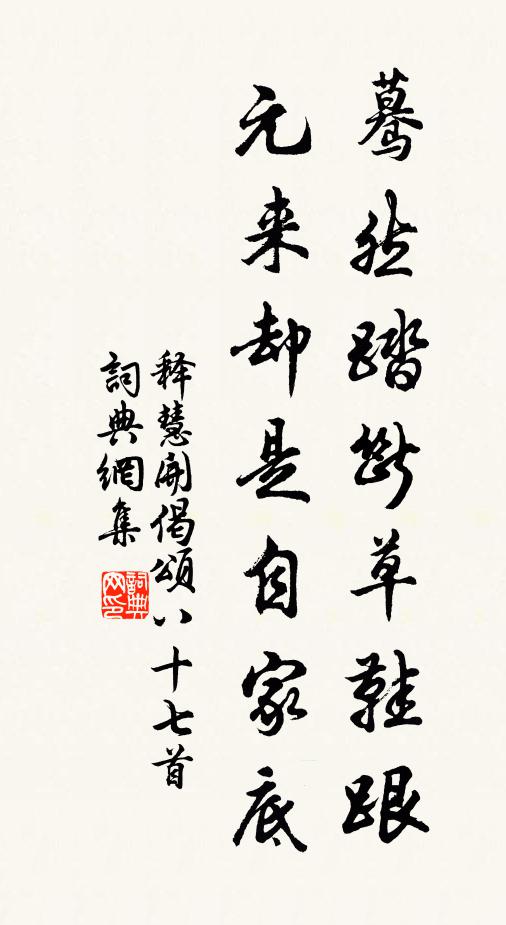 驀然踏斷草鞋跟
元来却是自家底
释慧開偈頌八十七首
詞典網集
詞典网印